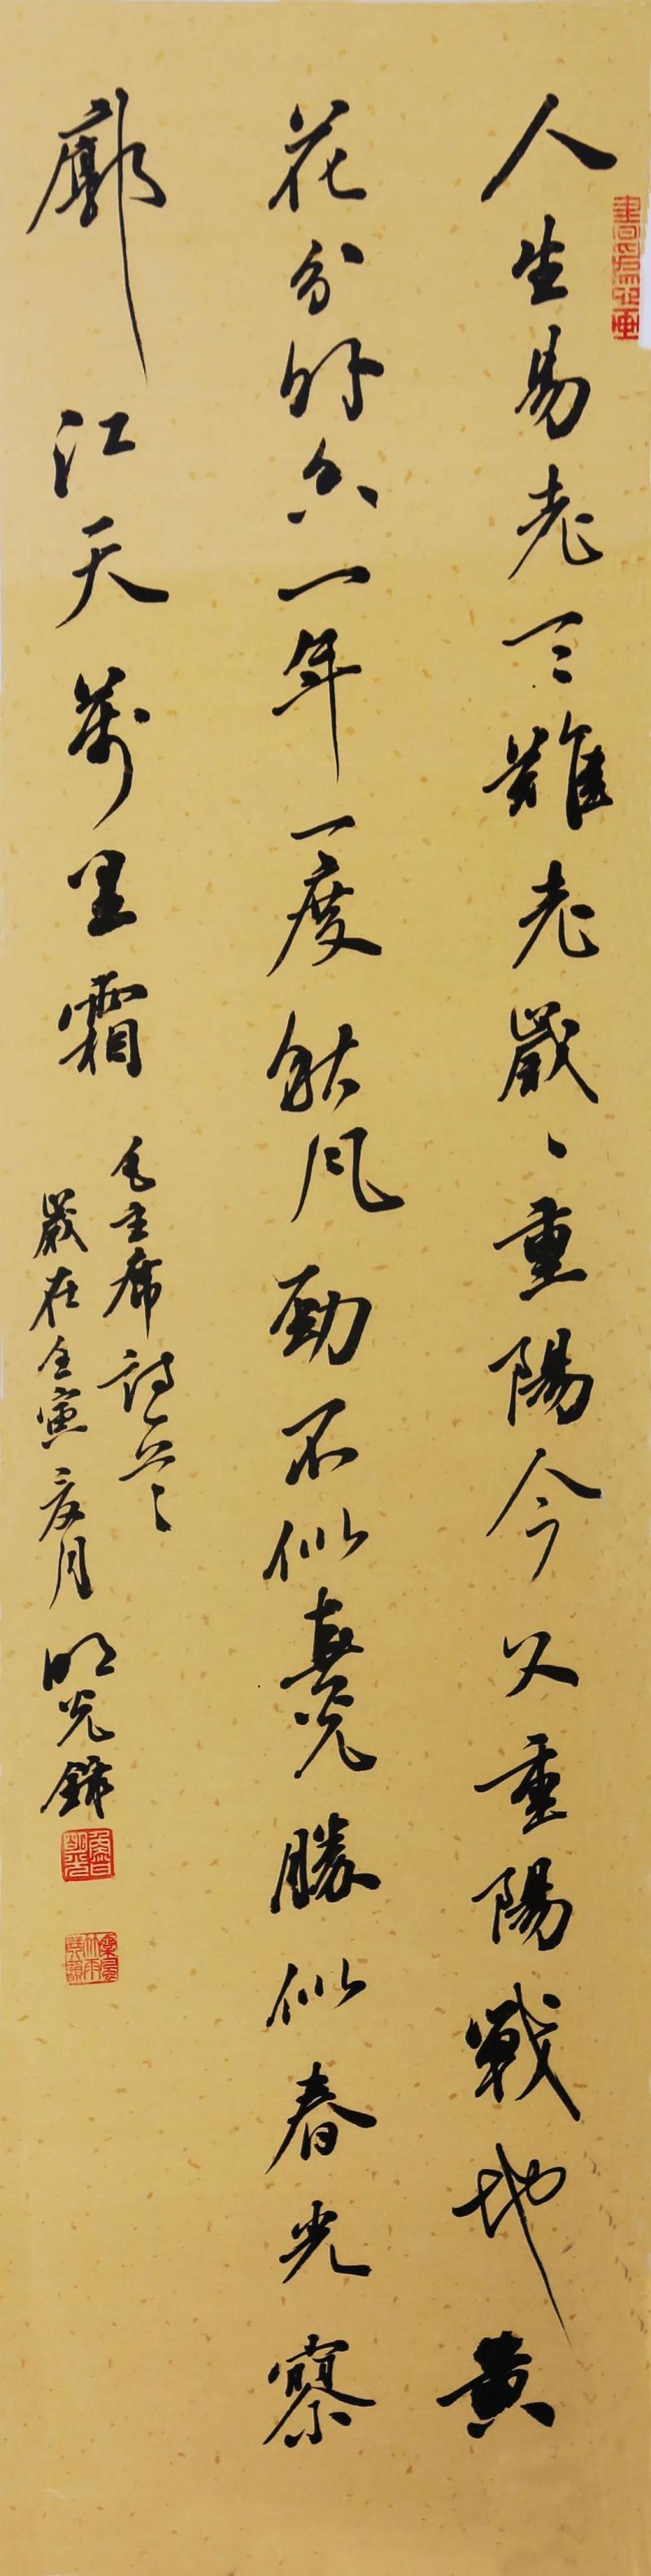 人生易老天難老歲々重陽今又重陽戰地黃
花分外香一年一度秋風勁不似春光勝似春光寥
廓江天萬里霜
毛主席詩一首
歲在壬寅夏月明光
書為心畫